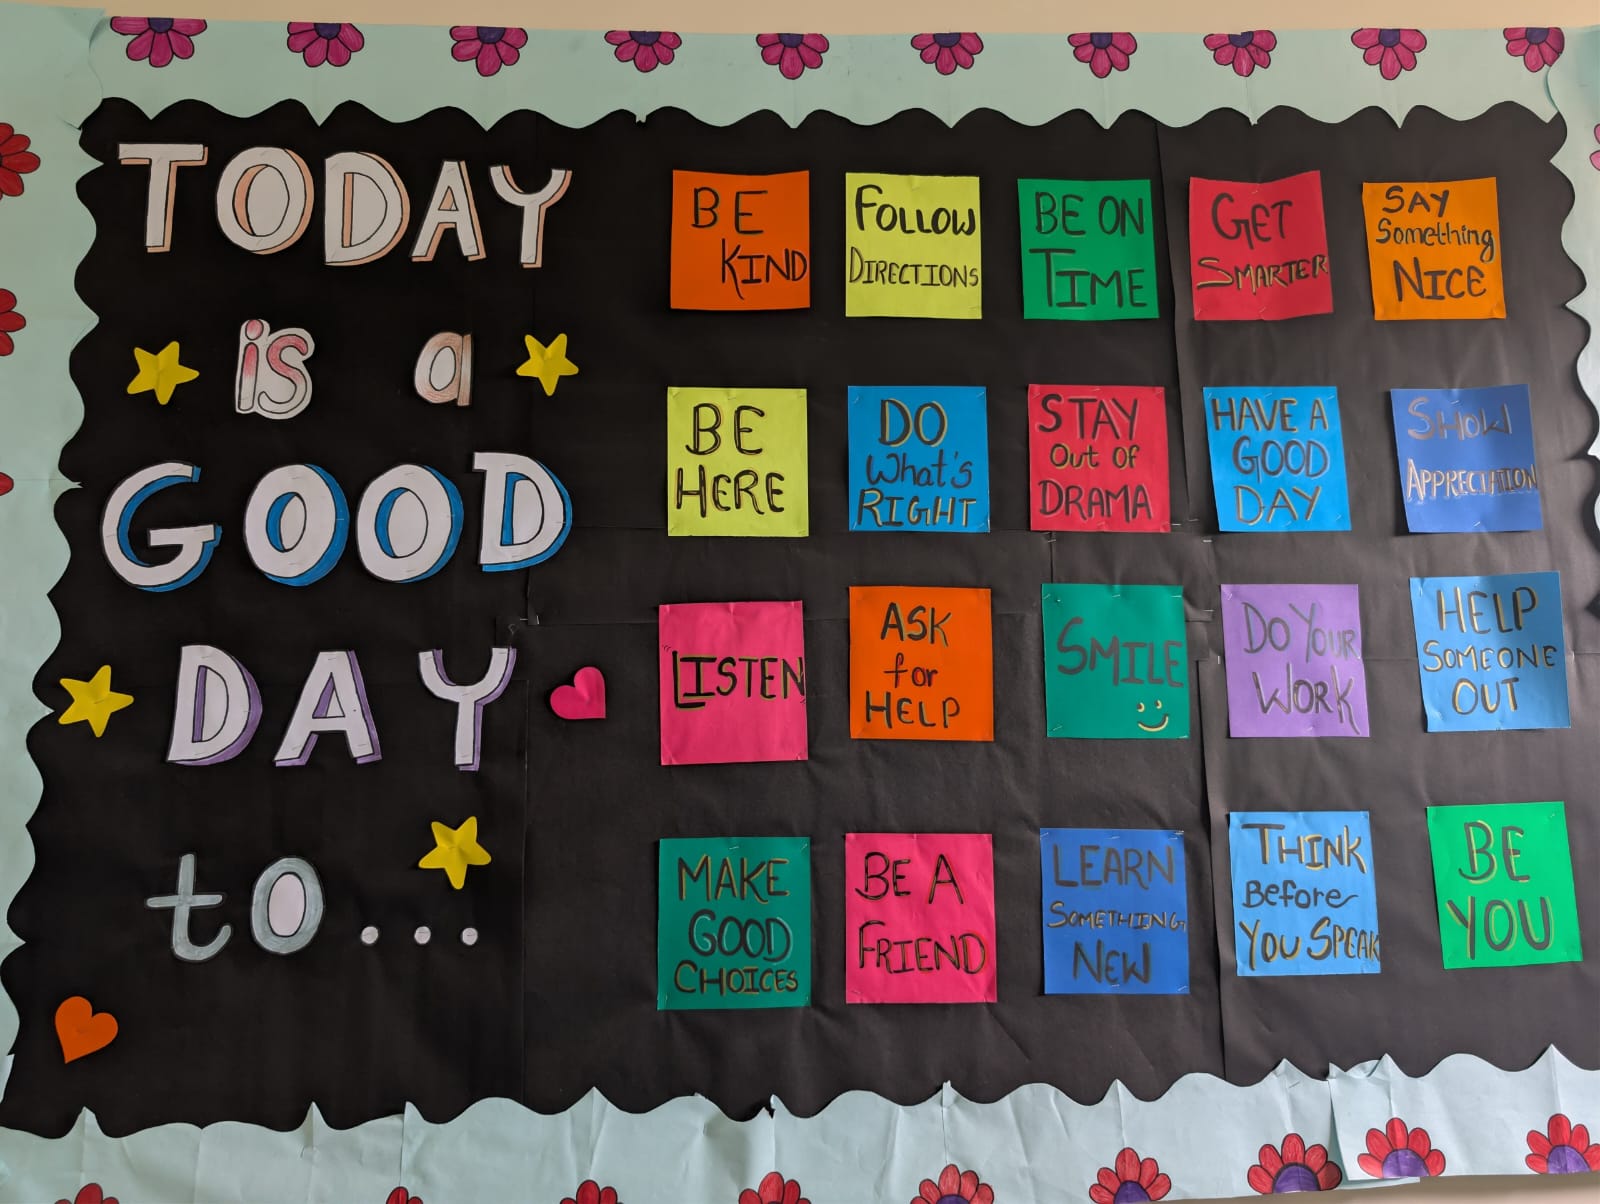 TODAY
is a
GOOD
DAY
to...
BE
KIND
FOLLOW
DIRECTIONS
BE ON
TIME
GET
SMARTER
SAY
Something
NICE
BE
HERE
DO
What's
RIGHT
STAY
Out of
DRAMA
HAVE A
GOOD
DAY
SHOW
APPRECIATION
LISTEN
ASK
for
HELP
SMILE
DO YOUR
WORK
HELP
SOMEONE
OUT
MAKE
GOOD
CHOICES
BE A
FRIEND
LEARN
SOMETHING
NEW
THINK
Before
YOU SPEAK
BE
YOU